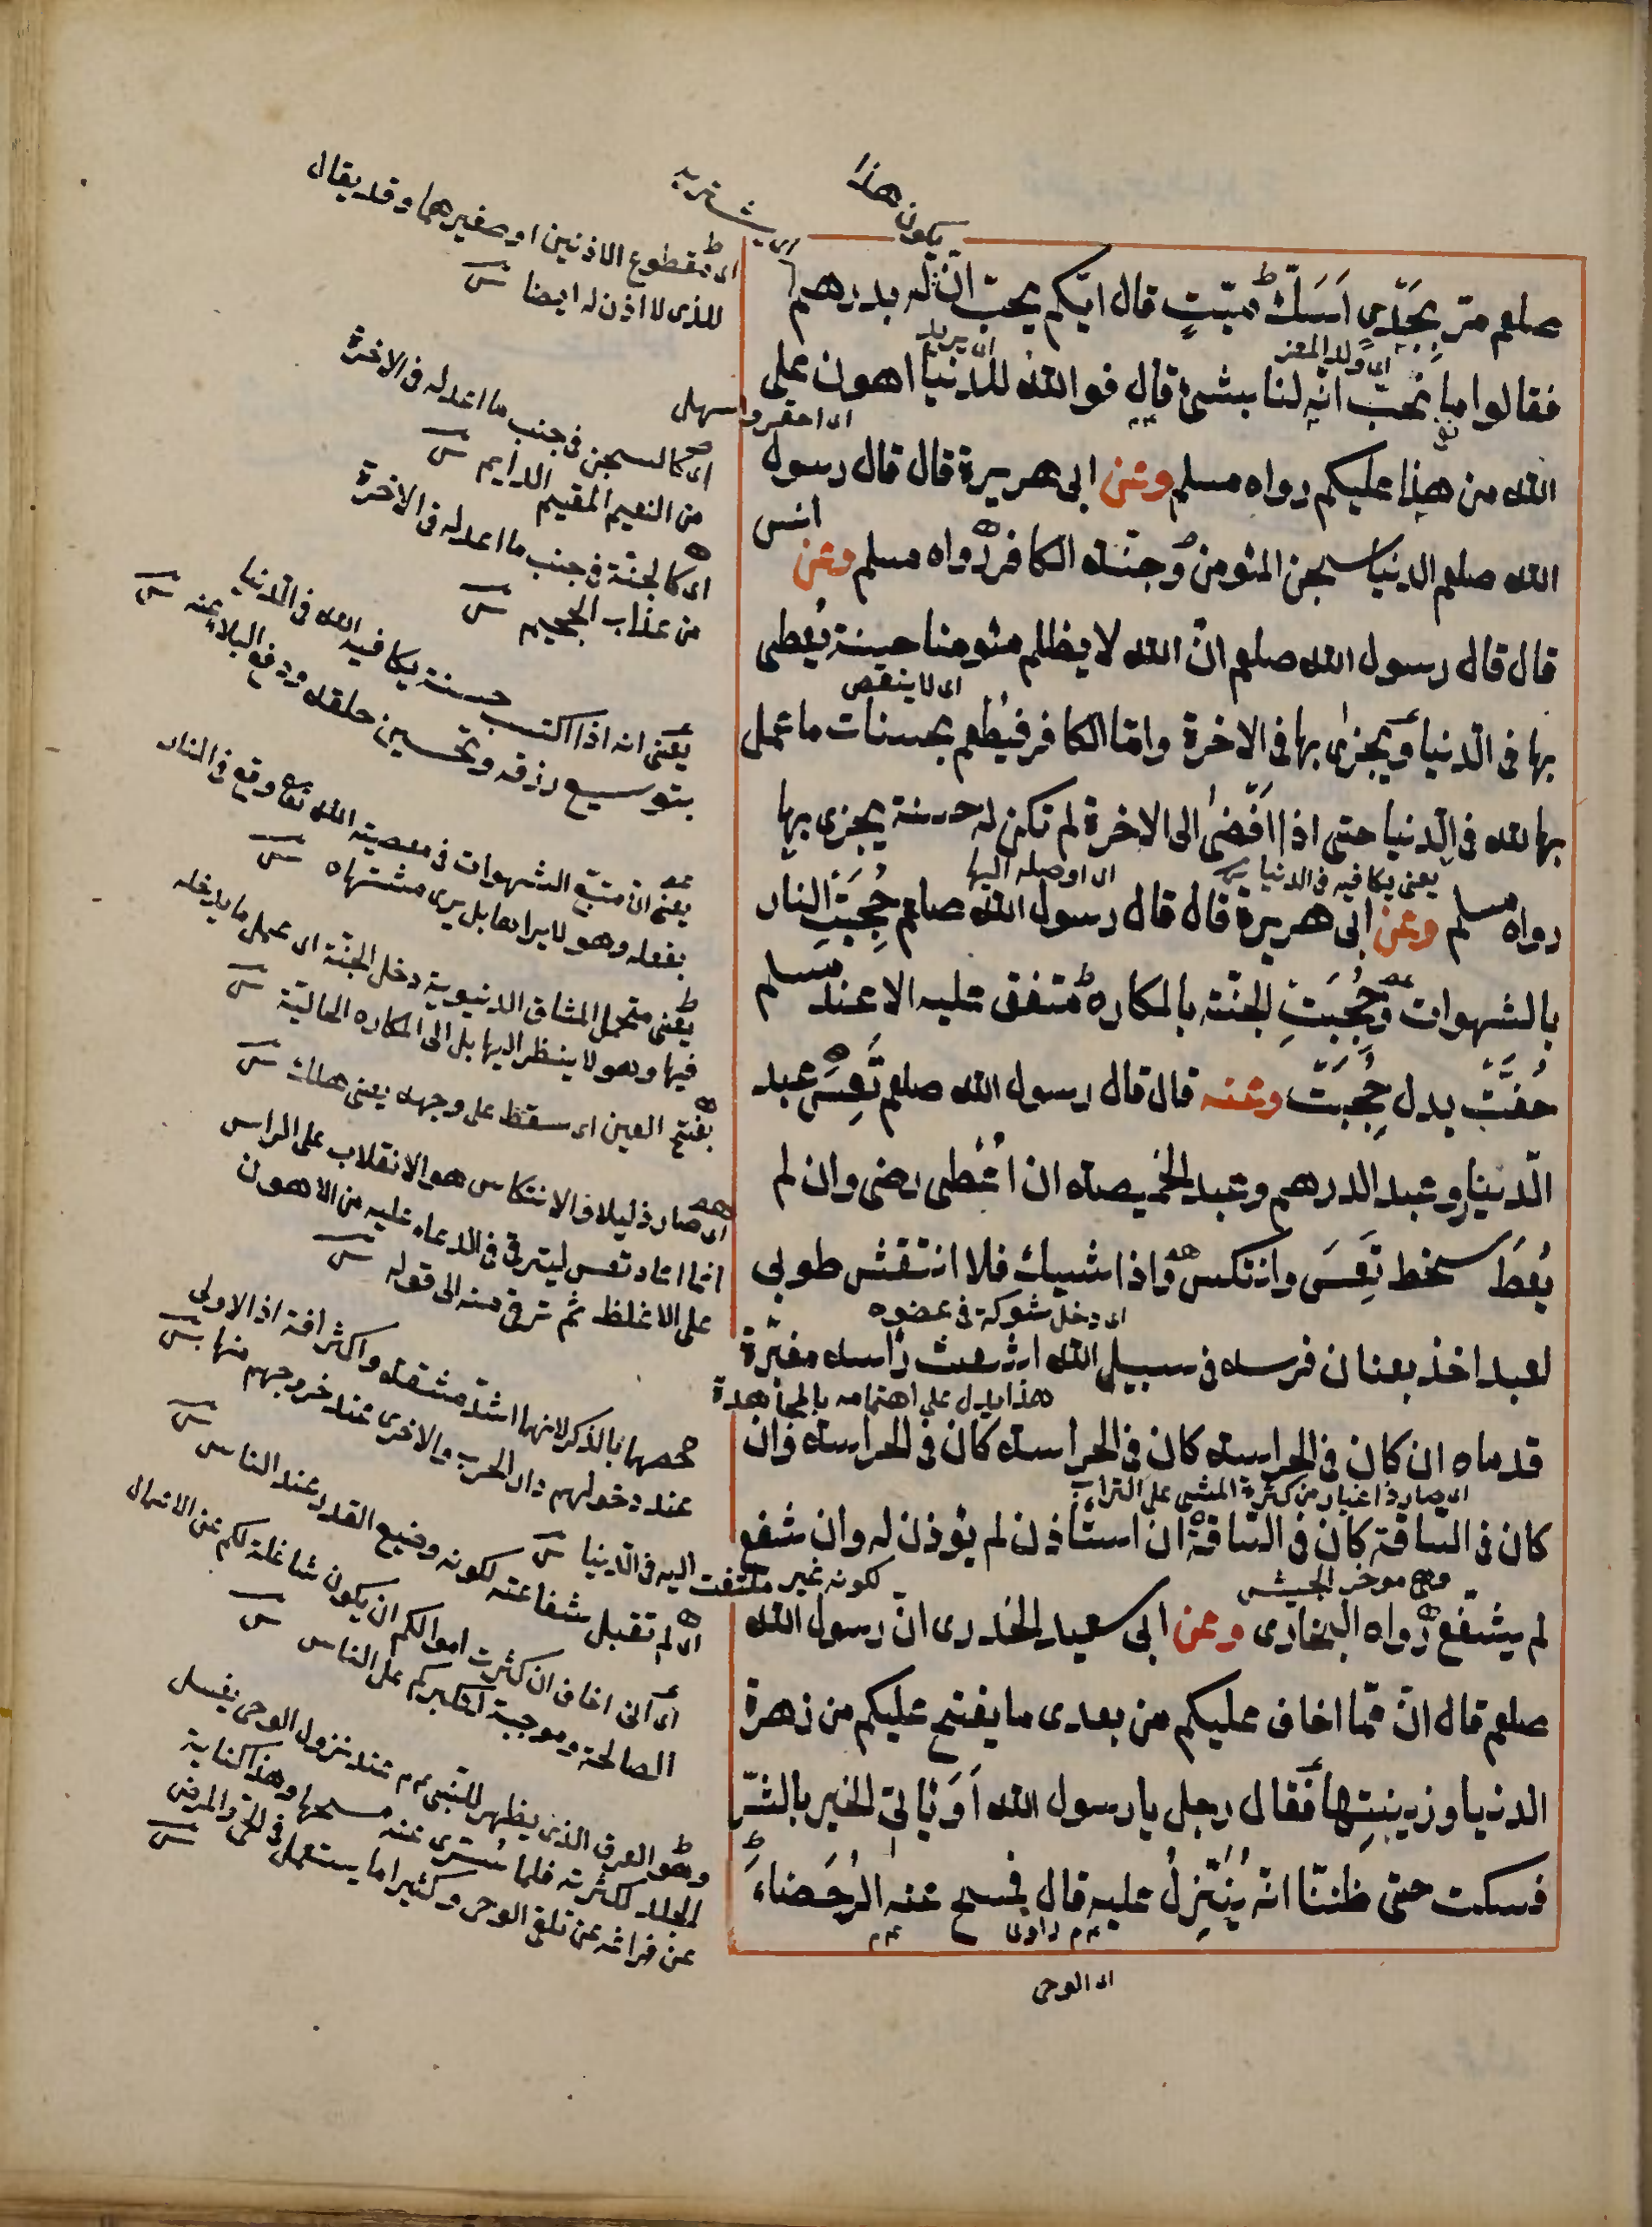 صلعم مرّ بِجَدْيٍ اَسَكَّ ميّتٍ قال ايّكم يحبّ انّ له بدرهم
فقالوا ما نُحبّ انّه لنا بشئ قال فوالله للدنيا اهون على
الله من هذا عليكم رواه مسلم وعن ابى هريرة قال قال رسول
الله صلعم الدنيا سجن المؤمن وجنّة الكافر رواه مسلم وعن انس
قال قال رسول الله صلعم انّ الله لا يظلم مؤمنا حسنة يُعطى
بها فى الدّنيا ويجزىٰ بها فى الاخرة وامّا الكافر فيُطعم بحسنات ما عمل
بها لله فى الدّنيا حتى اذا اَفْضىٰ الى الاخرة لم تكن له حسنة يجزى بها
رواه مسلم وعن ابى هريرة قال قال رسول الله صلعم حُجِبَتِ النار
بالشهوات وحُجِبَتِ الجنّة بالمكاره متفق عليه الا عند مسلم
حُفَّتْ بدل حُجِبَتْ وعنه قال قال رسول الله صلعم تَعِسَ عبد
الدّينار وعبد الدرهم وعبد الخميصة ان اُعْطى رضى وان لم
يُعطَ سخط تَعِسَ وانتكس واذا شيك فلا انتقش طوبى
لعبد اخذ بعنان فرسه فى سبيل الله اشعث راسه مغبرّة
قدماه ان كان فى الحراسة كان فى الحراسة كان فى الحراسة وان
كان فى السّاقة كان فى السّاقة ان استأذن لم يؤذن له وان شفع
لم يشفّع رواه البخارى وعن ابى سعيد الخدرى انّ رسول الله
صلعم قال انّ ممّا اخاف عليكم من بعدى ما يفتح عليكم من زهرة
الدنيا وزينتِها فقال رجل يا رسول الله اَوَيَاتى الخير بالشّرّ
فسكت حتى ظننّا انّه يُنَزّلُ عليه قال فمسح عنه الرُحَضاءَ
يكون هذا
اى يشتريه
اى ولد المعز
اى يريد
اى احقر واسهل
اى لا ينقص
يعنى يكافيه فى الدنيا
اى اوصله اليها
اى دخل شوكة فى عضوه
هذا يدل على اهتمامه بالمجاهدة
اى صار ذا غبار من كثرة المشى على التراب
وهى موخر الجيش
لكونه غير ملتفت اليه فى الدّنيا
راوى
اى الوحى
اى مقطوع الاذنين او صغيرهما وقد يقال
للذى لا اذن له ايضا
اى كالسجن فى جنب ما اعد له فى الاخرة
من النعيم المقيم الدايم
اى كالجنّة فى جنب ما اعد له فى الاخرة
من عذاب الجحيم
يعنى انه اذا اكتسب حسنة يكافيه الله فى الدّنيا
بتوسيع رزقه وتحسين خلقه ودفع البلاء عنه
يعنى ان متبّع الشهوات فى معصية الله تعا وقع فى النار
بفعله وهو لا يراها بل يرى مشتهاه
يعنى متحمل المشاق الدنيوية دخل الجنّة اى عمل ما يدخله
فيها وهو لا ينظر اليها بل الى المكاره الحاليّة
بفتح العين اى سقط على وجهه يعنى هلك
اى صار ذليلا والانتكاس هو الانقلاب على الراس
انما اعاد تعس ليترقى فى الدعاء عليه من الاهون
على الاغلظ ثم ترقى منه الى قوله
خصها بالذكر لانهما اشدّ مشقة واكثر افة اذ الاولى
عند دخولهم دار الحرب والاخرى عند خروجهم منها
اى لم تقبل شفاعته لكونه وضيع القدر عند الناس
اى انى اخاف ان كثرت اموالكم ان يكون شاغلة لكم عن الاعمال
الصالحة وموجبة لتكبركم على الناس
وهو العرق الذى يظهر للنّبى عم عند نزول الوحى يغسل
الجلد لكثرته فلما سُرى عنه مسحها وهذا كناية
عن فراغه عن تلقى الوحى وكثيرا ما يستعمل فى الحمّى والمرض